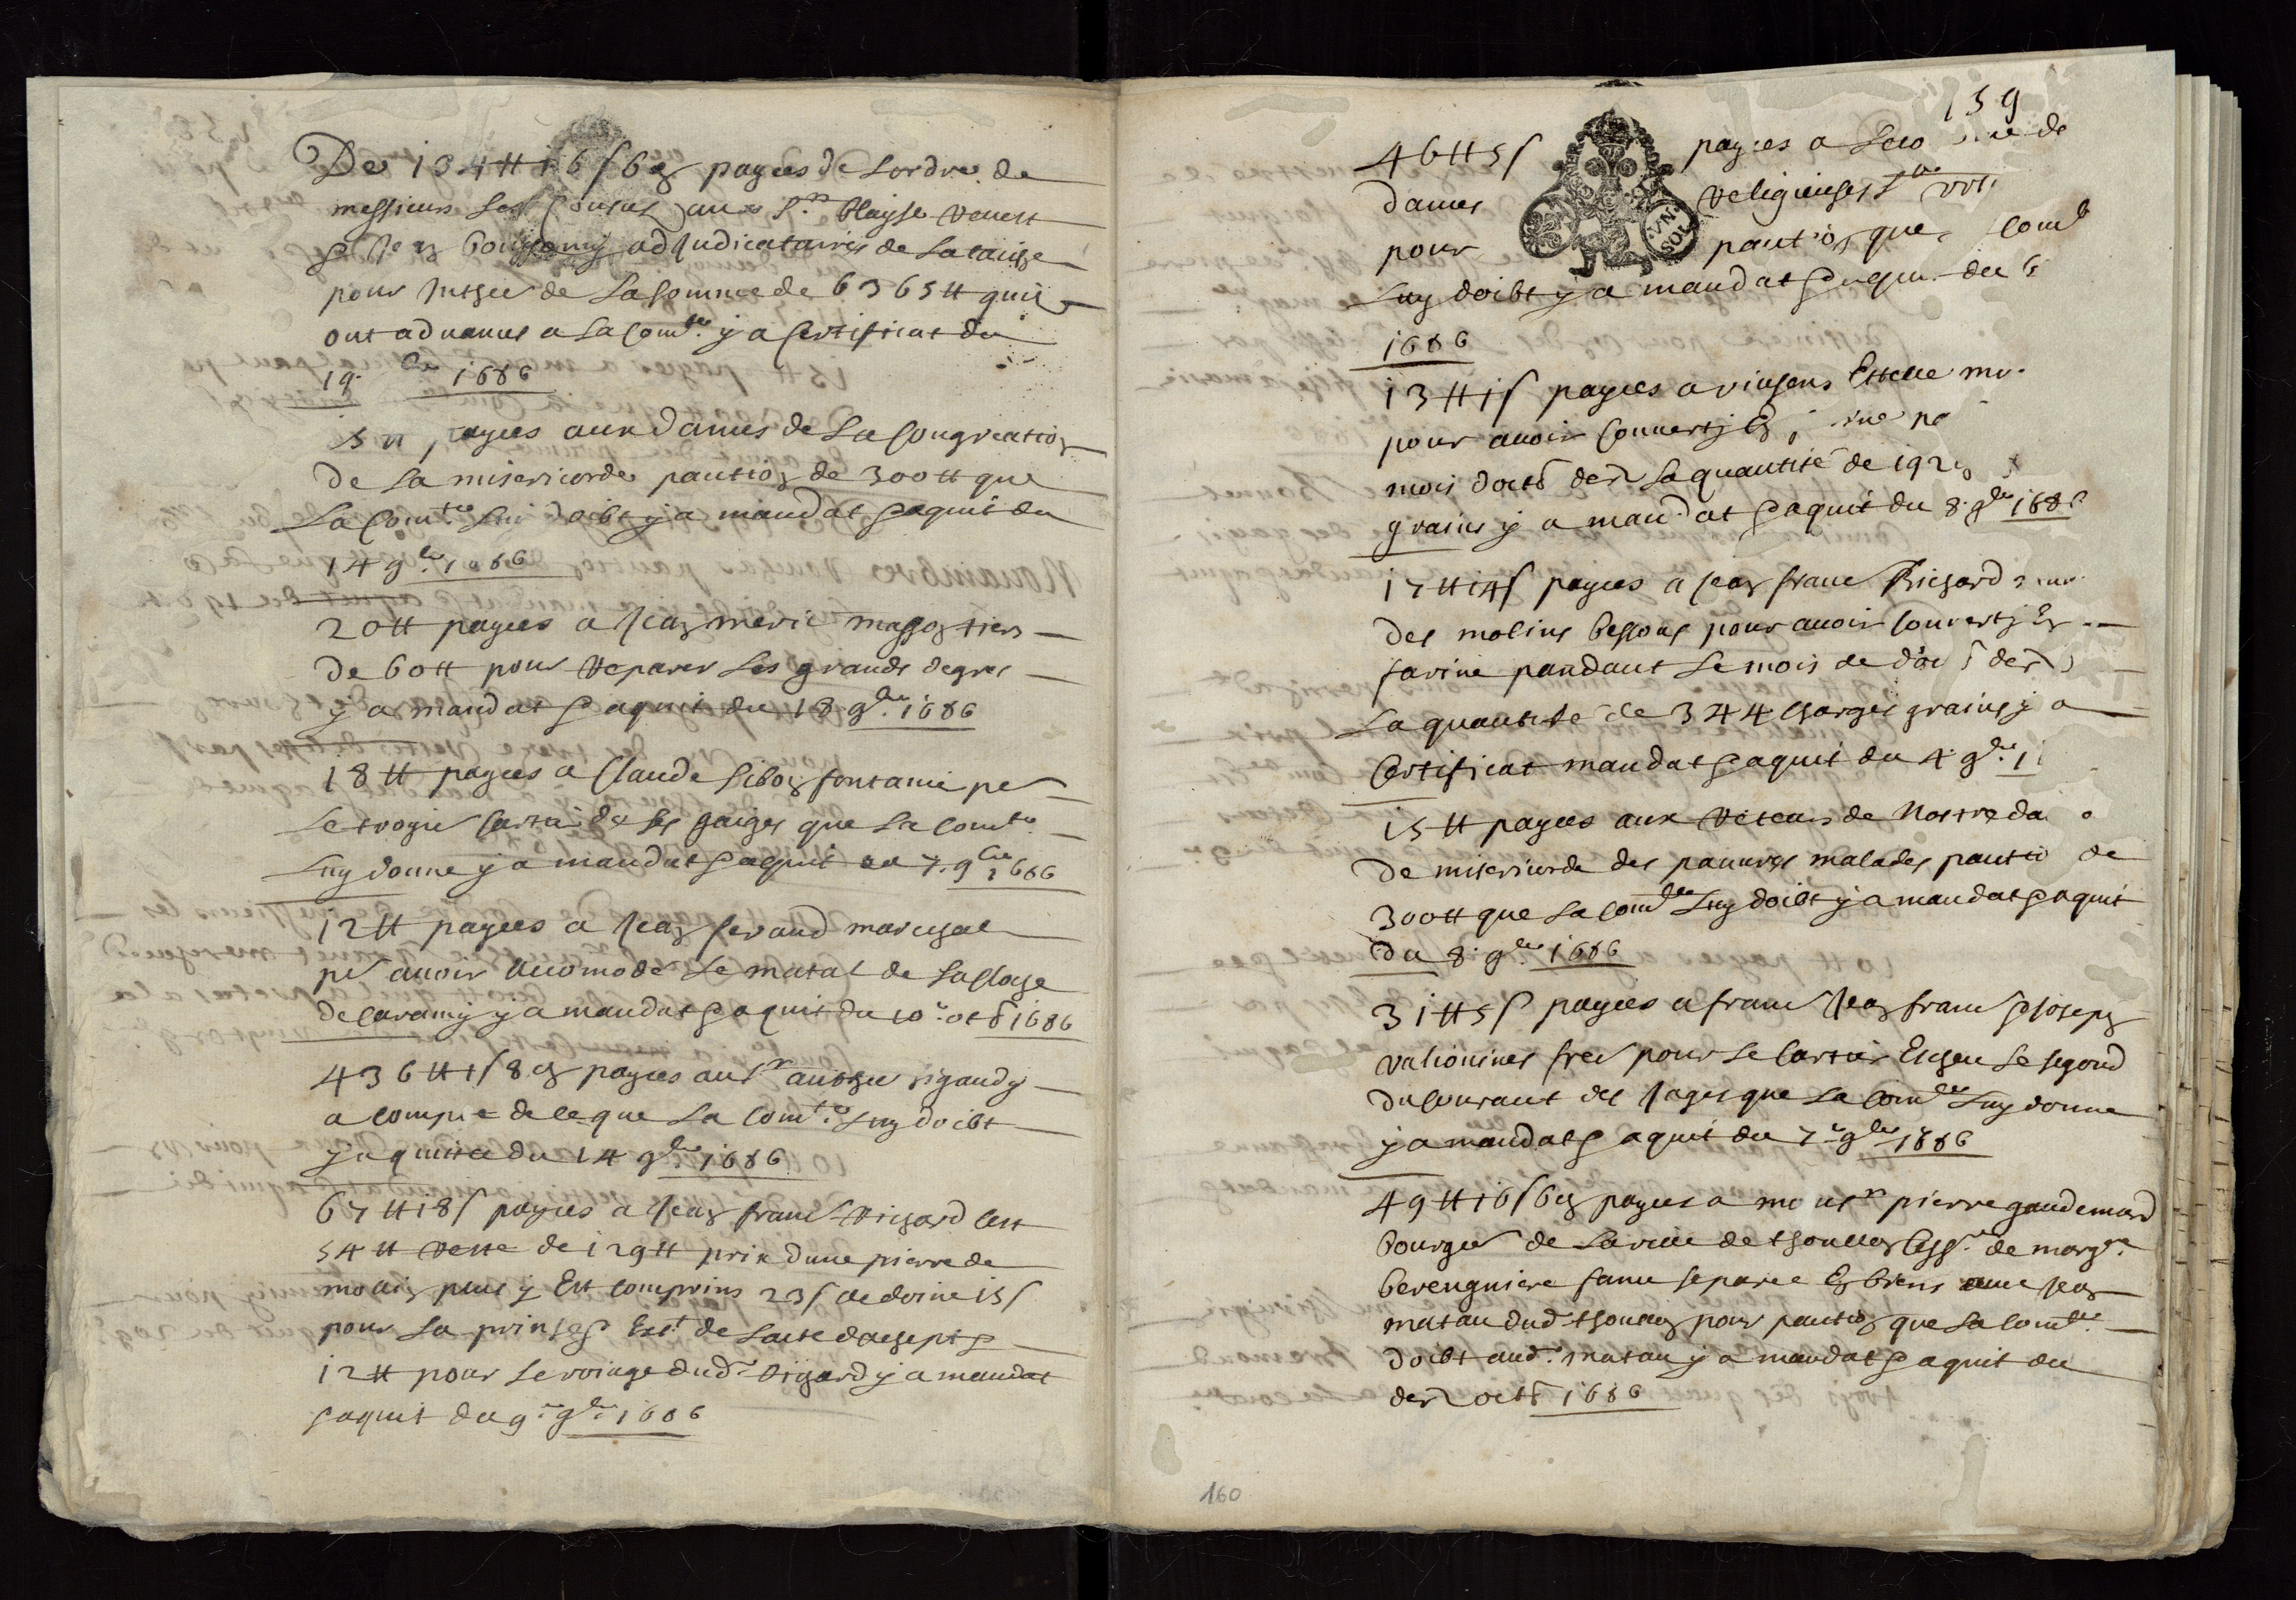 De 134 ₶ 16 s 6 d payees de lordre de
messieurs les Consuls aux Srs blayse
& Jean adjudicataires de la
pour de la somme de 6365 ₶ quils
ont advances a la Comte. y a Certifficat du
19. 1686
payees aux dames de La Congreation
de La misericorde pantion de 300 ₶ que
La Comte luy doibt y a mandat & aquit du
14 9bre 1686
20 ₶ payees a Jean meric masson tiers
de 60 ₶ pour reparer Les grands degres
y a mandat & aquit du 18 9bre. 1686
18 ₶ payees a Claude fontanie pr
Le quartie de ses gaiges que La Comte
Luy donne y a mandat & aquit du 7. 9bre 1686
12 ₶ payees a Jean feraud marechal
pr avoir acomode Le matal de La Cloge
de caramy y a mandat & aquit du 10e. octb 1686
436 ₶ 1 s 8 d payees au Sr rigaudy
a compte de ce que La Comte. Luy doibt
y a quittce du 14 9bre 1686
67 ₶ 18 s payees a Jean franc Richard Cest
54 ₶ reste de 129 ₶ prix dune pierre de
molin plus y Est comprins 23 s 15 s
pour La & Extt de Lacte dachept &
12 ₶ pour Le voiage dud. Richard y a mandat
& aquit du 9e. 9bre 1686
159
46 ₶ 5 s payees a de
dames religieuses Ste
pour pantion que Comte
Luy doibt y a mandat & aquit du
VN. SOL
1686
13 ₶ 1 s payees a vinsens Estelle
pour avoir Converty En
mois doctb der La quantité de 192
grains y a mandat & aquit du 8. 9bre 1686
17 ₶ 14 s payees a Jean franc Richard
des molins bessons pour avoir Converty En
farine pandant Le mois de der
La quantité de 344 charges grains y a
Certifficat mandat & aquit du 4e 9bre.
15 ₶ payees aux Recteurs de Nostre da
De misericorde des pauvres malades pantio de
300 ₶ que La Comte Luy doibt y a mandat & aquit
du 8. 9bre. 1686
31 ₶ 5 s payees a franc Jean franc & Joseph
freres pour Le Cartier Escheu Le segond
du Courant des gages que La Comte Luy donne
y a mandat & aquit du 7e 9bre 1686
49 ₶ 16 s 6 d payees a monsr pierre gaudemard
bourgeois de La ville de thoullon de margte
berenguiere fame separee En biens avec Jean
matau dud. thoullon pour pantion que La Comte.
doibt aud. matau y a mandat & aquit du
der octb 1686
160